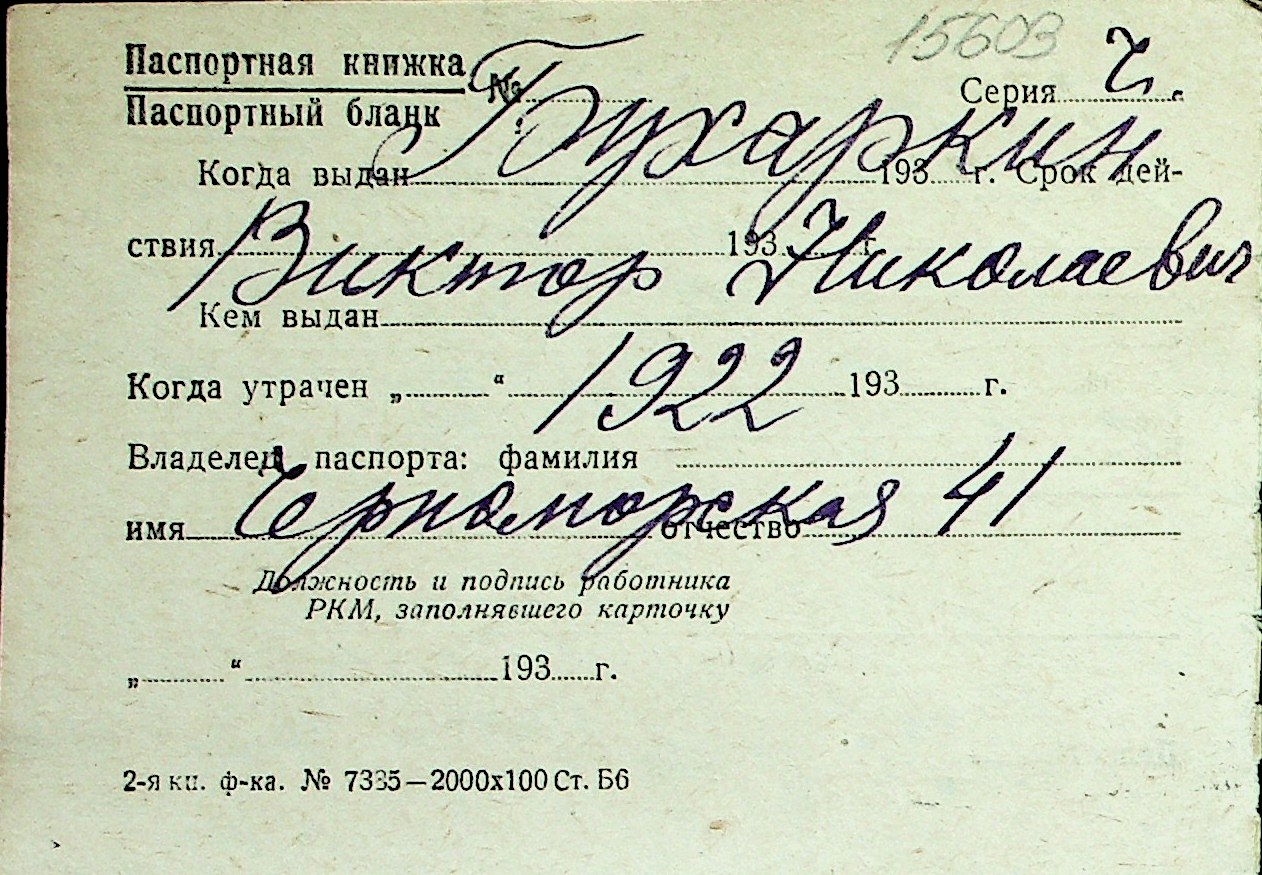 15603
Паспортная книжка №
Паспортный бланк Серия ч.
Бухаркин
Когда выдан 193 г. Срок дей-
ствия 193 г.
Виктор Николаевич
Кем выдан
1922
Когда утрачен „ “ 193 г.
Владелец паспорта: фамилия
Черноморская 41
имя отчество
Должность и подпись работника
РКМ, заполнявшего карточку
„ “ 193 г.
2-я кн. ф-ка. № 7335—2000х100 Ст. Б6